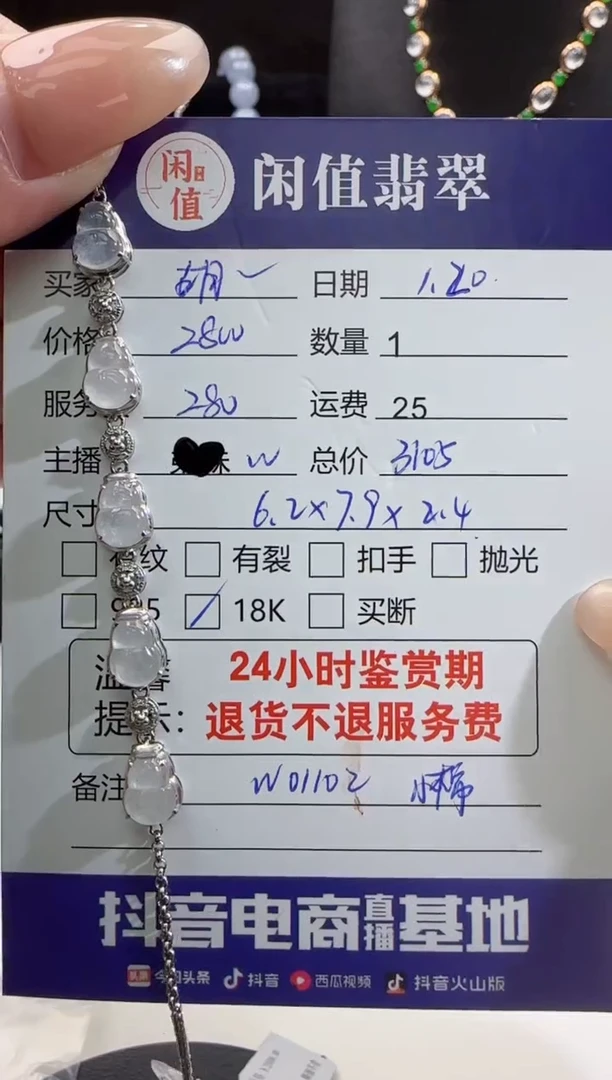 闲值 闲值翡翠
买家 胡一 日期 1.20
价格 2800 数量 1
服务 280 运费 25
主播 妹 W 总价 3105
尺寸 6.2×7.9×2.4
有纹 有裂 扣手 抛光
925 18K 买断
温馨 24小时鉴赏期
提示： 退货不退服务费
备注 W01102
抖音电商直播基地
今日头条 抖音 西瓜视频 抖音火山版